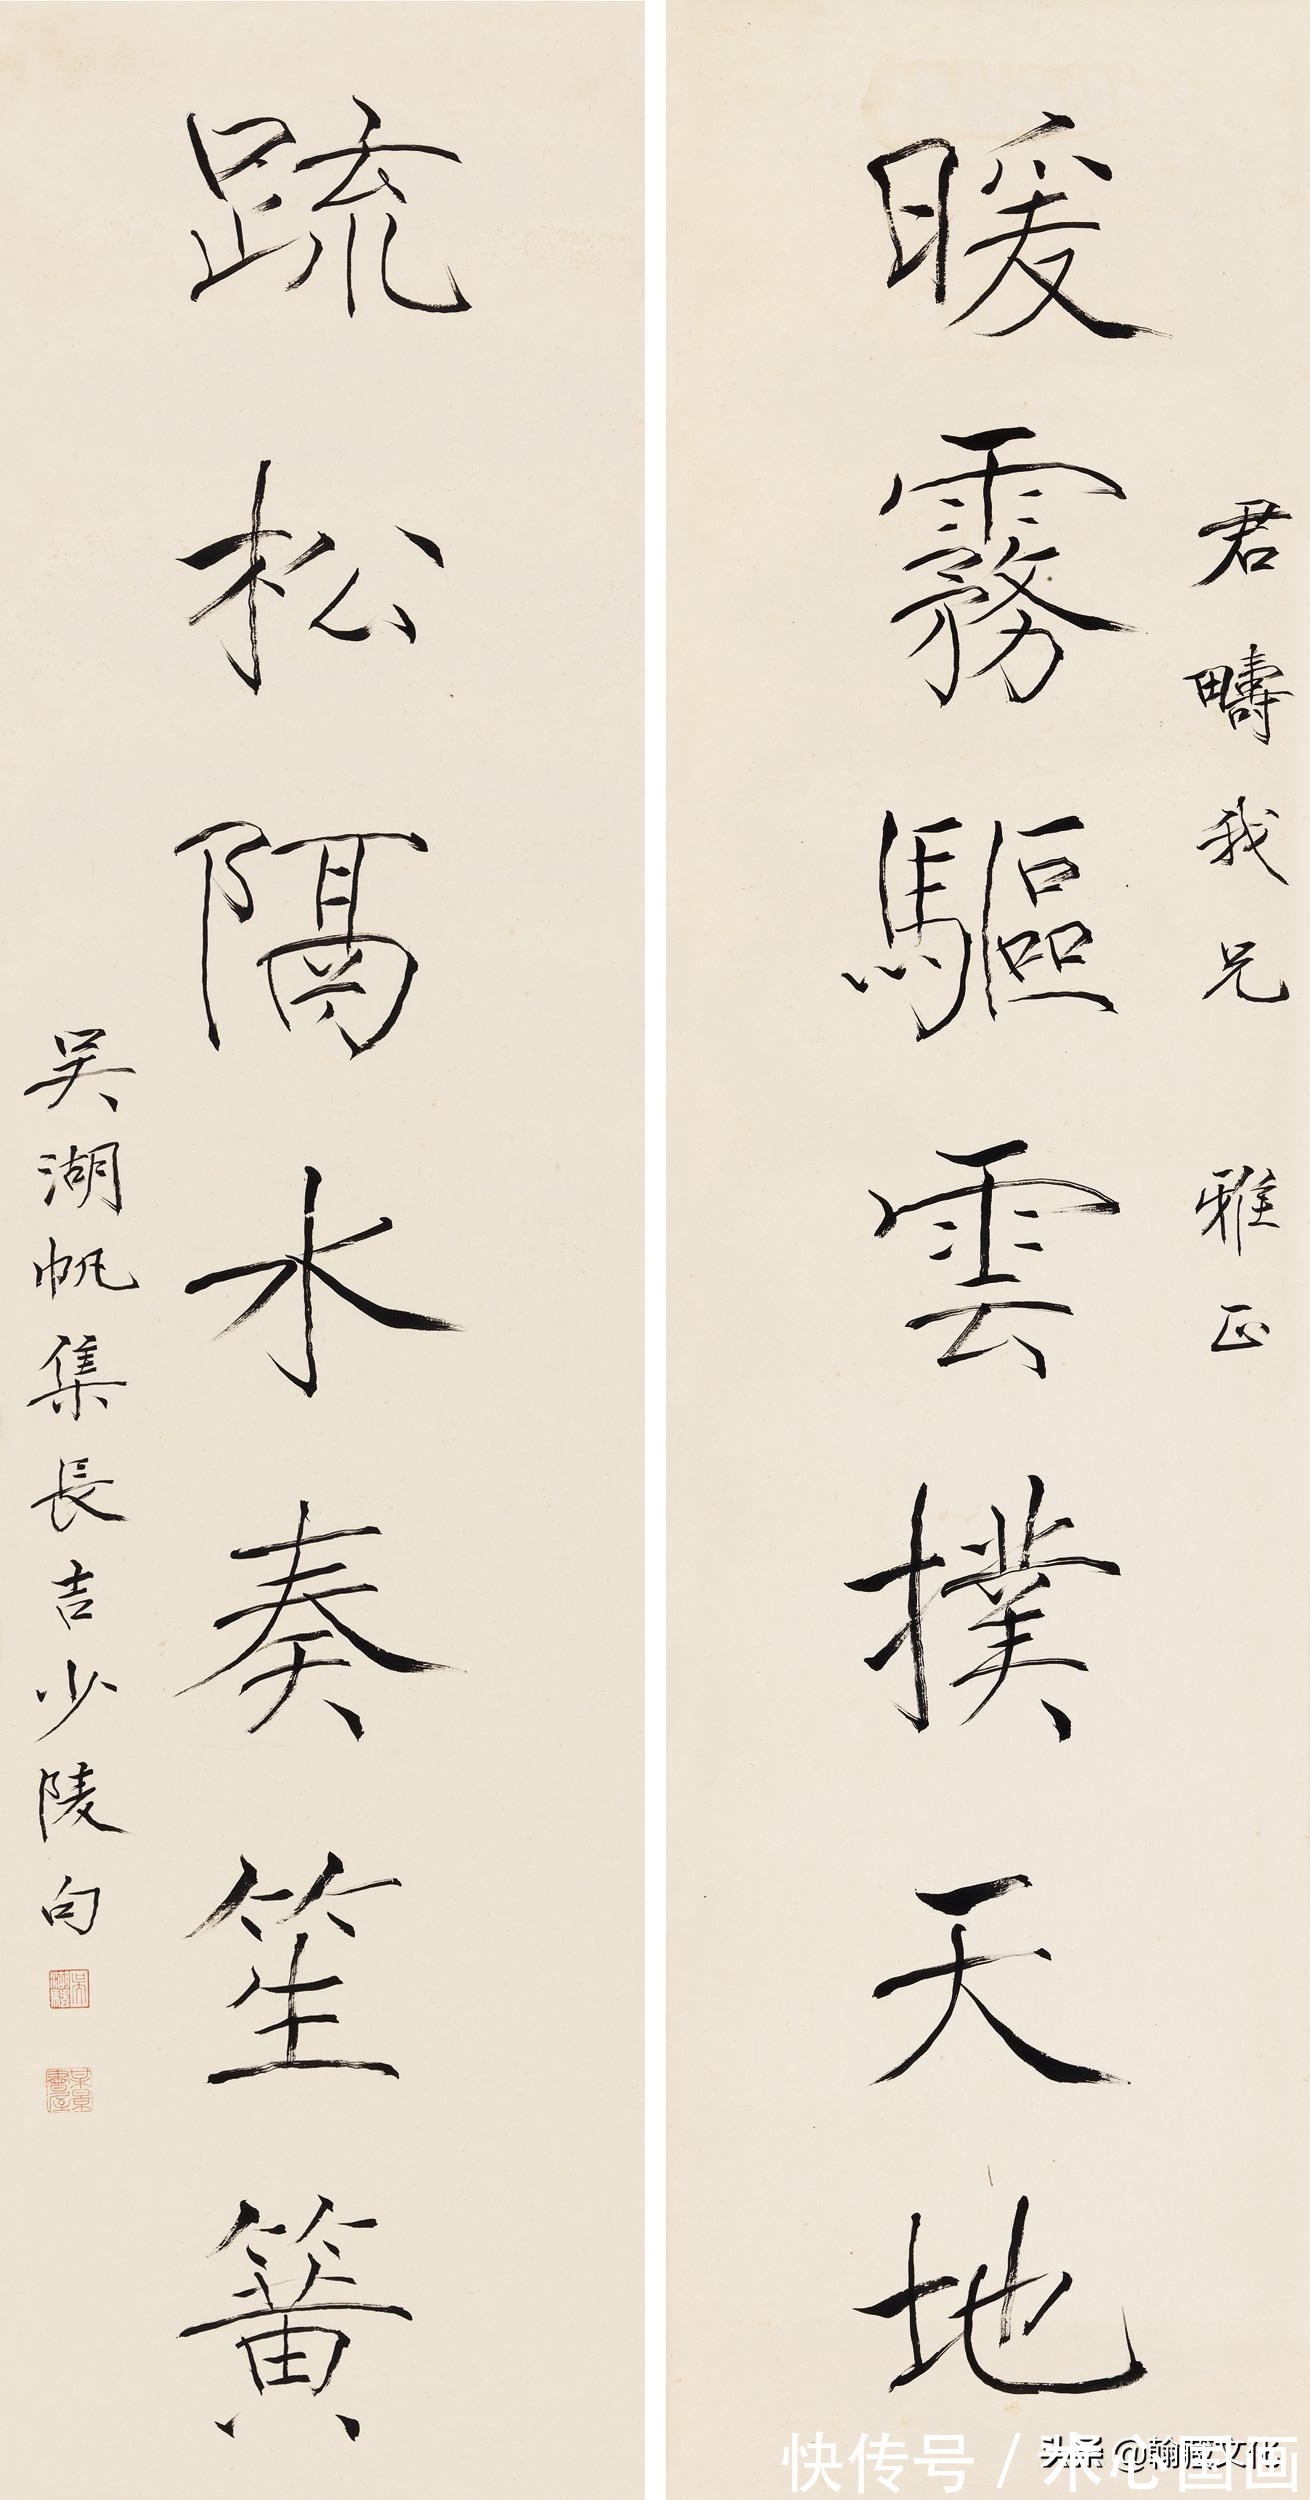 君疇我兄 雅正
暖霧驅雲撲天地
疏松隔水奏笙簧
吳湖帆集長吉少陵句
快传号/木心国画
头条 @翰藏文化